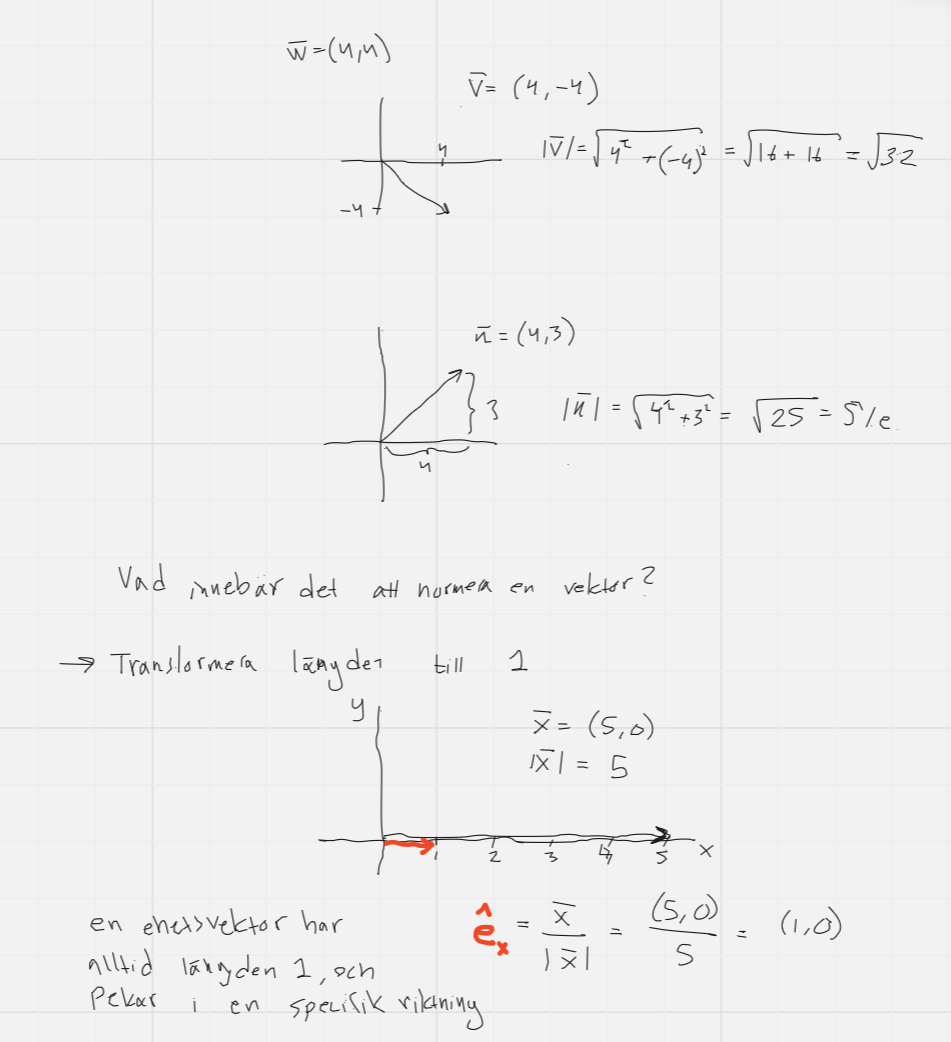 w̅ = (4,4)
v̅ = (4,-4)
|v̅| = √(4² + (-4)²) = √(16 + 16) = √32
4
-4
n̅ = (4,3)
3
|n̅| = √(4² + 3²) = √25 = 5 l.e.
4
Vad innebär det att normera en vektor?
→ Transformera längden till 1
y
x̅ = (5,0)
|x̅| = 5
1 2 3 4 5 x
en ehetsvektor har
alltid längden 1, och
Pekar i en specifik riktning
ê_x = x̅/|x̅| = (5,0)/5 = (1,0)